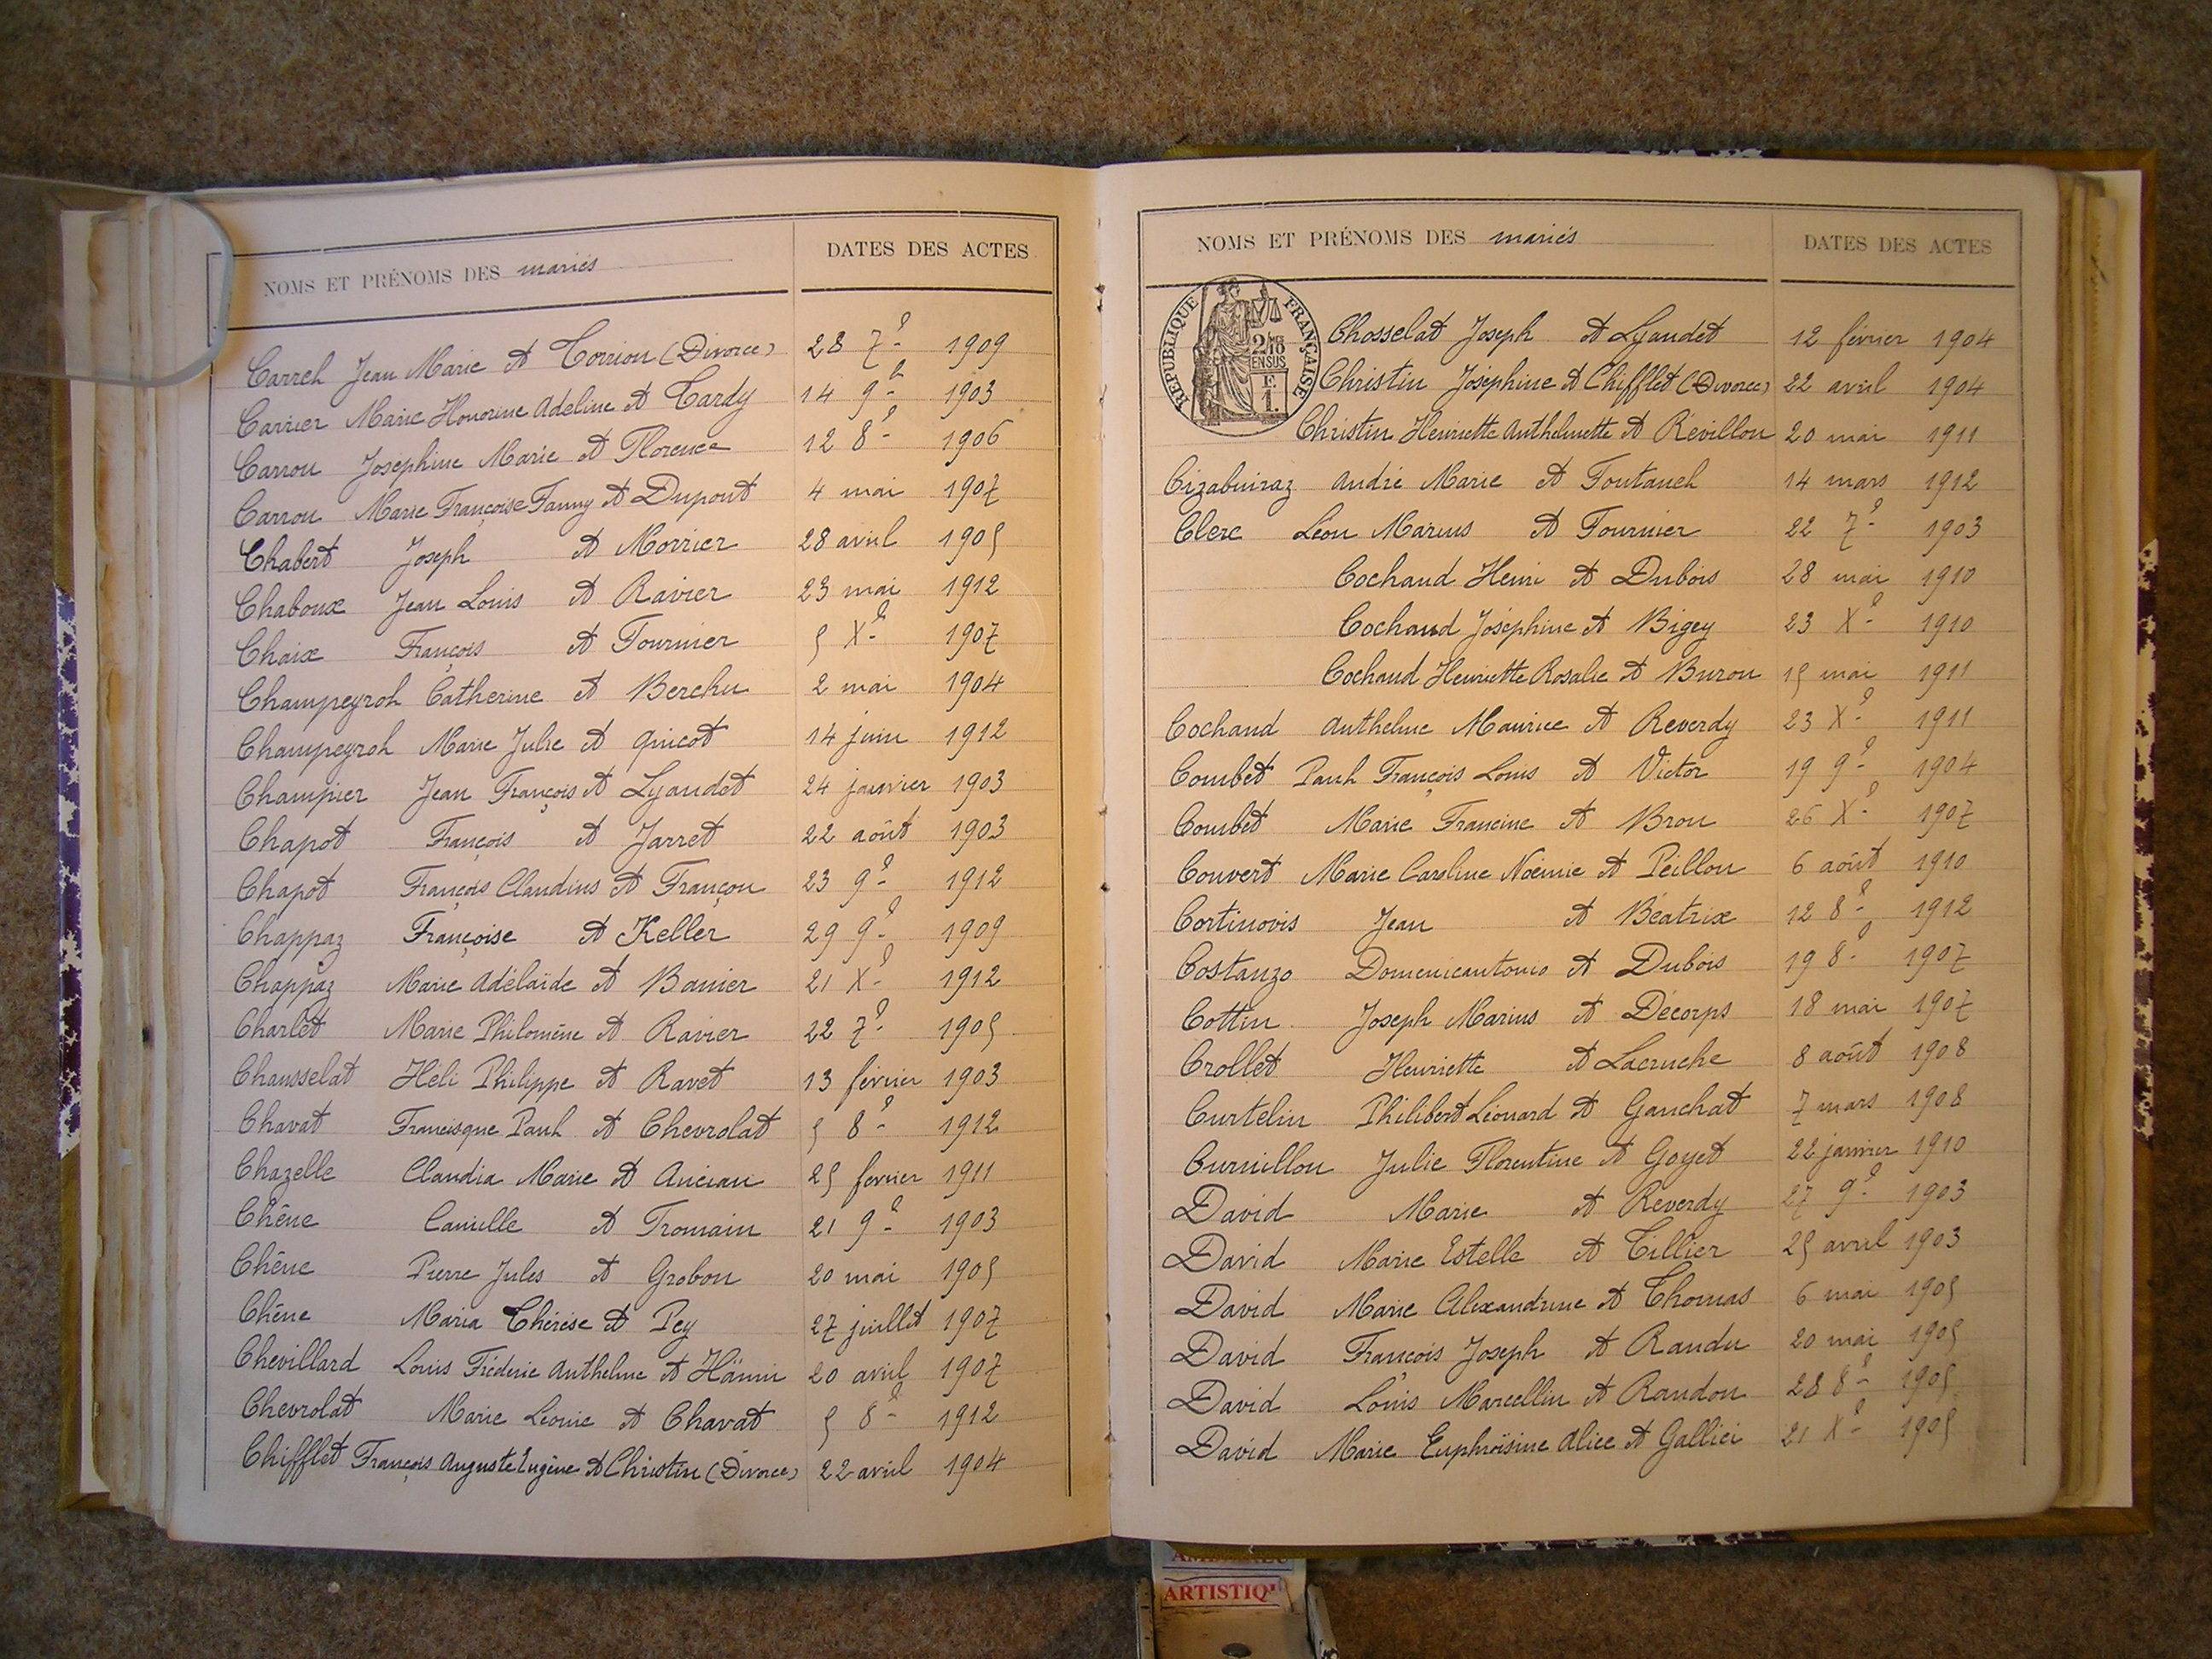 NOMS ET PRÉNOMS DES mariés DATES DES ACTES
Carrel Jean Marie et Corrion (Divorce) 28 7e 1909
Carrier Marie Honorine Adeline et Tardy 14 9e 1903
Carrou Joséphine Marie et Florence 12 8e 1906
Carrou Marie Françoise Fanny et Dupont 4 mai 1907
Chabert Joseph et Morrier 28 avril 1905
Chaboux Jean Louis et Ravier 23 mai 1912
Chaix François et Fournier 5 Xe 1907
Champeyrol Catherine et Berchu 2 mai 1904
Champeyrol Marie Julie et Quicot 14 juin 1912
Champier Jean François et Lyaudet 24 janvier 1903
Chapot François et Jarret 22 août 1903
Chapot François Claudius et Françon 23 9e 1912
Chappaz Françoise et Keller 29 9e 1909
Chappaz Marie Adélaïde et Banier 21 Xe 1912
Charlet Marie Philomène et Ravier 22 7e 1905
Chausselat Héli Philippe et Ravet 13 février 1903
Chavat Francisque Paul et Chevrolat 5 8e 1912
Chazelle Claudia Marie et Ancian 25 février 1911
Chêne Camille et Tromain 21 9e 1903
Chêne Pierre Jules et Grobon 20 mai 1905
Chêne Maria Thérèse et Pey 27 juillet 1907
Chevillard Louis Fréderic Anthelme et Hänni 20 avril 1907
Chevrolat Marie Léonie et Chavat 5 8e 1912
Chifflet François Auguste Eugène et Christin (Divorce) 22 avril 1904
NOMS ET PRÉNOMS DES mariés DATES DES ACTES
RÉPUBLIQUE FRANÇAISE
2/10 EN SUS
Chosselat Joseph et Lyaudet 12 février 1904
Christin Joséphine et Chifflet (Divorce) 22 avril 1904
Christin Henriette Anthelmette et Révillon 20 mai 1911
Cizabuiraz André Marie et Fontanel 14 mars 1912
Clerc Léon Marius et Fournier 22 7e 1903
Cochand Henri et Dubois 28 mai 1910
Cochand Joséphine et Bigey 23 Xe 1910
Cochand Henriette Rosalie et Buron 15 mai 1911
Cochand Anthelme Maurice et Reverdy 23 Xe 1911
Combet Paul François Louis et Victor 19 9e 1904
Combet Marie Francine et Brou 26 Xe 1907
Convert Marie Caroline Noémie et Péillon 6 août 1910
Cortinovis Jean et Béatrix 12 8e 1912
Costanzo Domenicantonio et Dubois 19 8e 1907
Cottin Joseph Marius et Décorps 18 mai 1907
Crollet Henriette et Lacruche 8 août 1908
Curtelin Philibert Léonard et Gauchat 7 mars 1908
Curnillon Julie Florentine et Goyet 22 janvier 1910
David Marie et Reverdy 27 9e 1903
David Marie Estelle et Tillier 25 avril 1903
David Marie Alexandrine et Thomas 6 mai 1905
David François Joseph et Randu 20 mai 1905
David Louis Marcellin et Randon 28 8e 1905
David Marie Euphroïsine Alice et Gallici 21 Xe 1905
ARTISTIQ